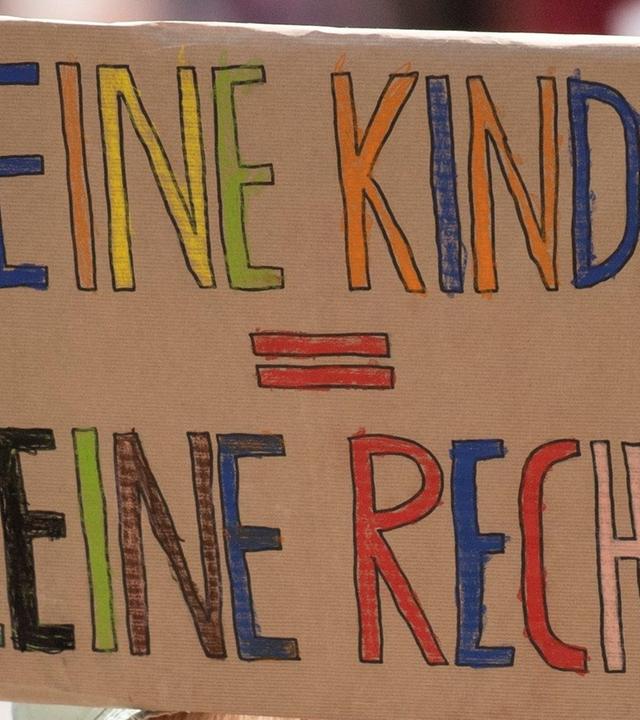 EINE KIND
=
EINE RECH